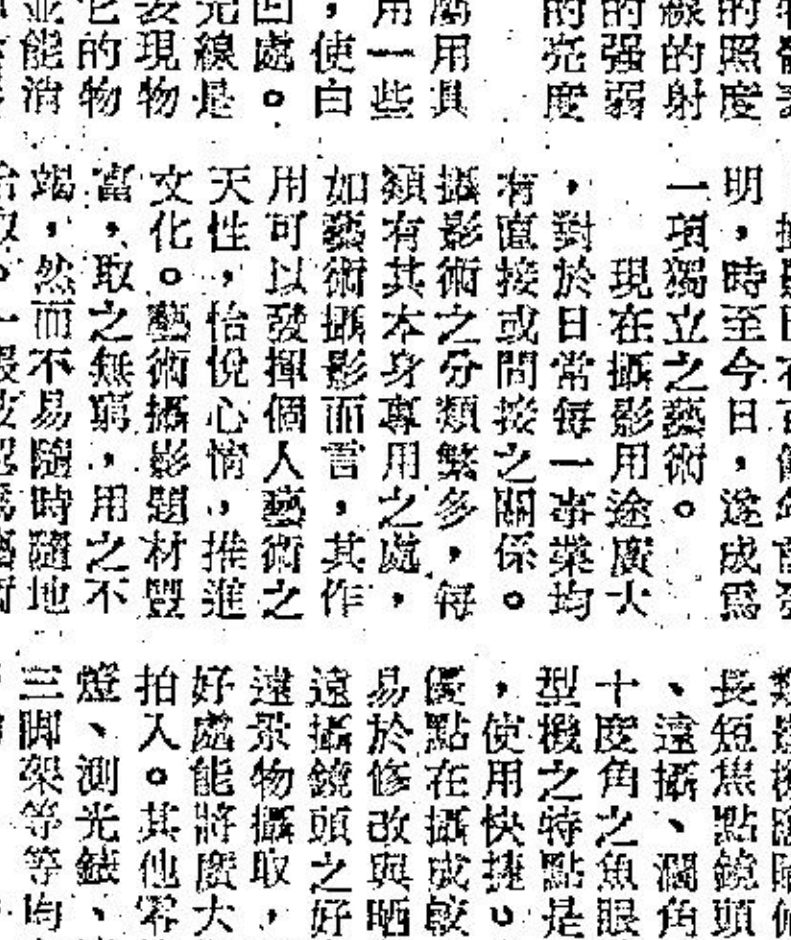 的照度
線的射
的强弱
的亮度
用具
用一些
，使白
凹處。
光線是
現物
它的物
並能消
明，時至今日，遂成爲
一項獨立之藝術。
現在攝影用途廣大
，對於日常每一事業均
有直接或間接之關係。
攝影術之分類繁多，每
類有其本身專用之處，
如藝術攝影而言，其作
用可以發揮個人藝術之
天性，怡悅心情，推進
文化。藝術攝影題材豐
富，取之無窮，用之不
竭，然而不易隨時隨地
長短焦點鏡頭
、遠攝、濶角
十度角之魚眼
型機之特點是
，使用快捷。
優點在攝成較
易於修改與晒
遠攝鏡頭之好
遠景物攝取，
好處能將廣大
拍入。其他零
燈、測光錶、
三脚架等等均